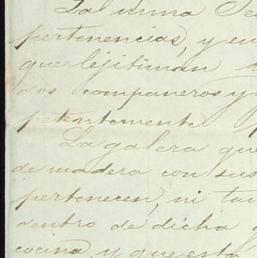 La misma
pertenencias, y en
que lejitiman
dos companeros y
petentemente
La galera que
de madera con sus
pertenecen, ni tam
dentro de dicha
cocina, y que esta